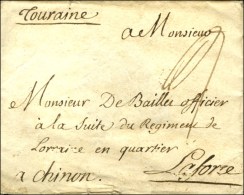 Touraine
a Monsieur
Monsieur De Bailles officier
à la Suite du Regiment de
Lorraine en quartier
a chinon. Laforce